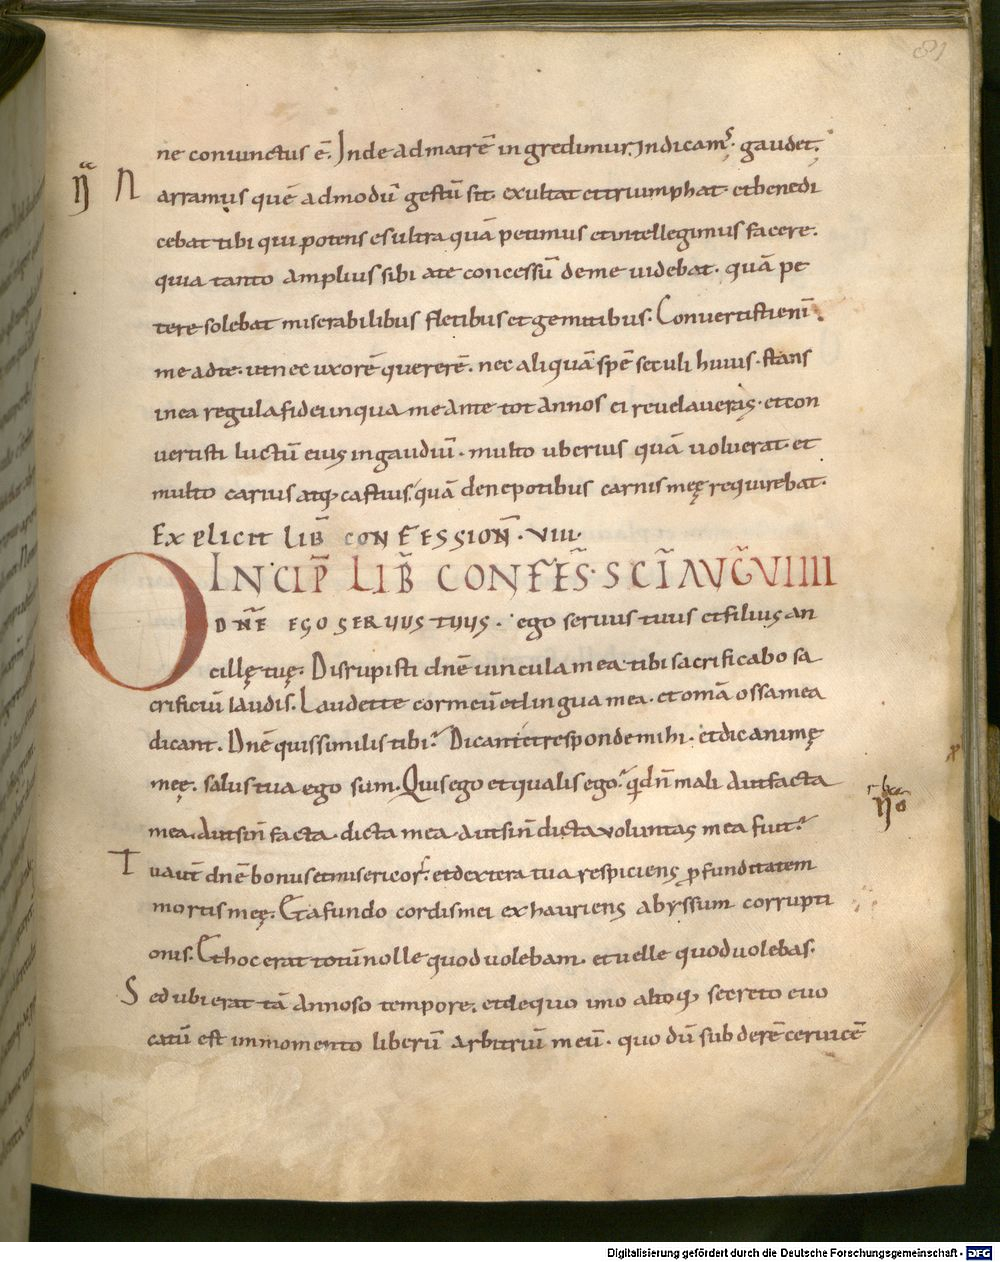 81
ne coniunctus ē. Inde ad matrē ingredimur. Indicamˢ. gaudet.
N arramus quē admodū gestū sit. exultat et triumphat. et benedi
cebat tibi qui potens es ultra quā petimus et intellegimus facere.
quia tanto amplius sibi a te concessū de me uidebat. quā pe
tere solebat miserabilibus fletibus et gemitibus. Conuertisti enī
me ad te. ut nec uxorē quererē. nec aliquā spē seculi huius. stans
in ea regula fidei in qua me ante tot annos ei reuelaueras. et con
uertisti luctū eius in gaudiū. multo uberius quā uoluerat. et
multo carius atq; castius. quā de nepotibus carnis meę requirebat.
Explicit LIB̄ CONFESSION̄. VIII.
INCIP̄ LIB̄ CONFES̄. SC̄I AUḠ VIIII
O DN̄E EGO SERUUS TUUS. ego seruus tuus et filius an
cillę tuę. Disrupisti dn̄e uincula mea tibi sacrificabo sa
crificiū laudis. Laudet te cor meū et lingua mea. et om̄a ossa mea
dicant. Dn̄e quis similis tibi? Dicant et responde mihi. et dic animę
meę. salus tua ego sum. Quis ego et qualis ego? qd n̄ mali aut facta
mea. aut si n̄ facta. dicta mea. aut si n̄ dicta uoluntas mea fuit?
T u aut̄ dn̄e bonus et misericors. et dextera tua respiciens ꝓfunditatem
mortis meę. Et a fundo cordis mei exhauriens abyssum corrupti
onis. Et hoc erat totū nolle quod uolebam. et uelle quod uolebas.
S ed ubi erat tā annoso tempore. et de quo imo altoq; secreto euo
catū est in momento liberū arbitriū meū. quo dū subderē ceruicē
Digitalisierung gefördert durch die Deutsche Forschungsgemeinschaft - DFG